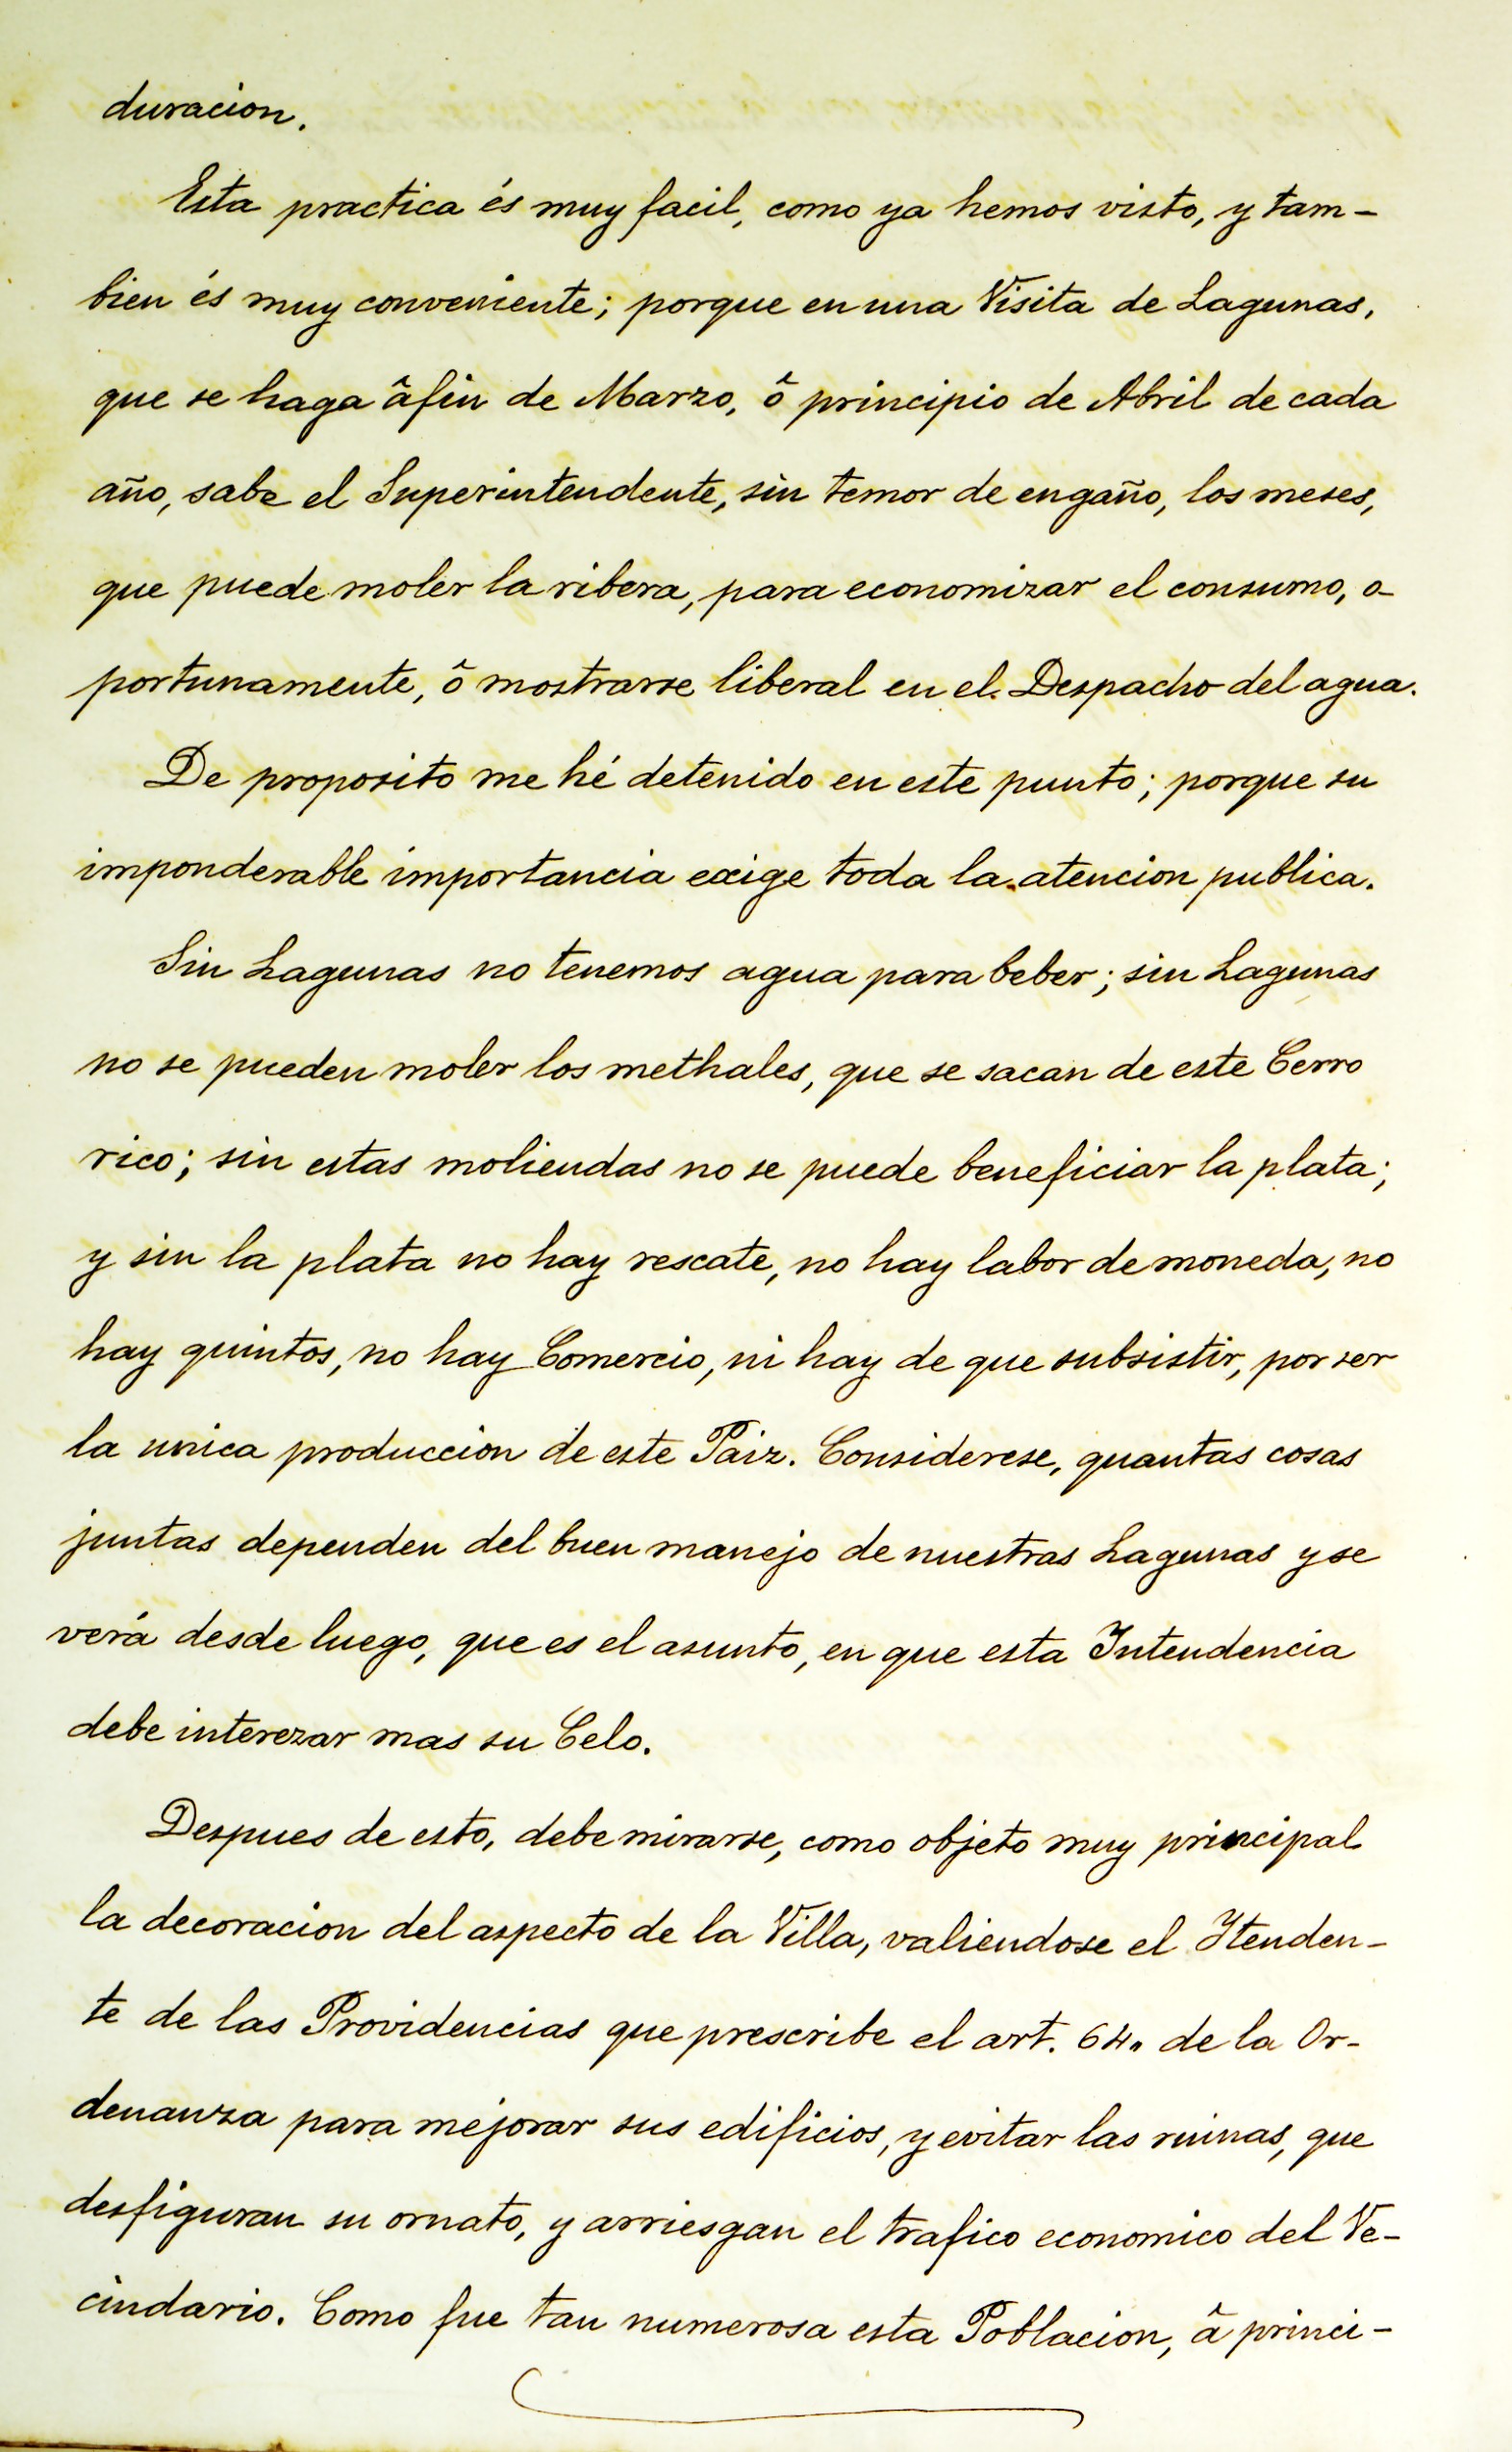 duracion.
Esta practica és muy facil, como ya hemos visto, y tam-
bien és muy conveniente; porque en una Visita de Lagunas,
que se haga â fin de Marzo, ô principio de Abril de cada
año, sabe el Superintendente, sin temor de engaño, los meses,
que puede moler la ribera, para economizar el consumo, o-
portunamente, ô mostrarse liberal en el Despacho del agua.
De proposito me hé detenido en este punto; porque su
imponderable importancia exige toda la atencion publica.
Sin Lagunas no tenemos agua para beber; sin Lagunas
no se pueden moler los methales, que se sacan de este Cerro
rico; sin estas moliendas no se puede beneficiar la plata;
y sin la plata no hay rescate, no hay labor de moneda, no
hay quintos, no hay Comercio, ni hay de que subsistir, por ser
la unica produccion de este Paiz. Considerese, quantas cosas
juntas dependen del buen manejo de nuestras Lagunas y se
verá desde luego, que es el asunto, en que esta Intendencia
debe interezar mas su Celo.
Despues de esto, debe mirarse, como objeto muy principal
la decoracion del aspecto de la Villa, valiendose el Itenden-
te de las Providencias que prescribe el art. 64" de la Or-
denanza para mejorar sus edificios, y evitar las ruinas, que
desfiguran su ornato, y arriesgan el trafico economico del Ve-
cindario. Como fue tan numerosa esta Poblacion, â princi-